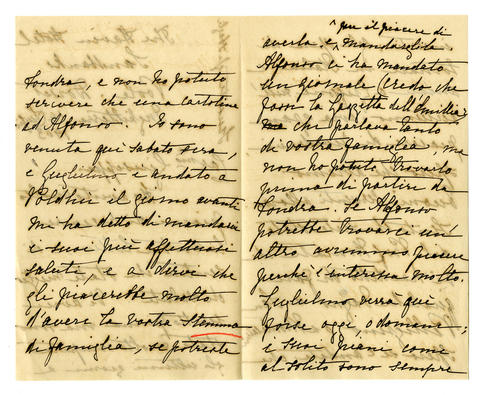 Londra, e non ho potuto
scrivere che una cartolina
ad Alfonso. Io sono
venuta qui sabato sera,
e Guglielmo è andato a
Poldhu il giorno avanti
mi ha detto di mandarvi
i suoi più affettuosi
saluti, e a dirve che
gli piacerebbe molto
d'avere la vostra stemma
di famiglia, se potreste
per il piacere di
averla e mandargliela.
Alfonso ci ha mandato
un giornale (credo che
fosse la Gazzetta dell'Emilia)
che parlava tanto
di vostra famiglia ma
non ho potuto trovarlo
prima di partire da
Londra. Se Alfonso
potrebbe trovarci un'
altro avremmo piacere
perché c'interessa molto.
Guglielmo verrà qui
forse oggi, o domani;
i suoi piani come
al solito sono sempre